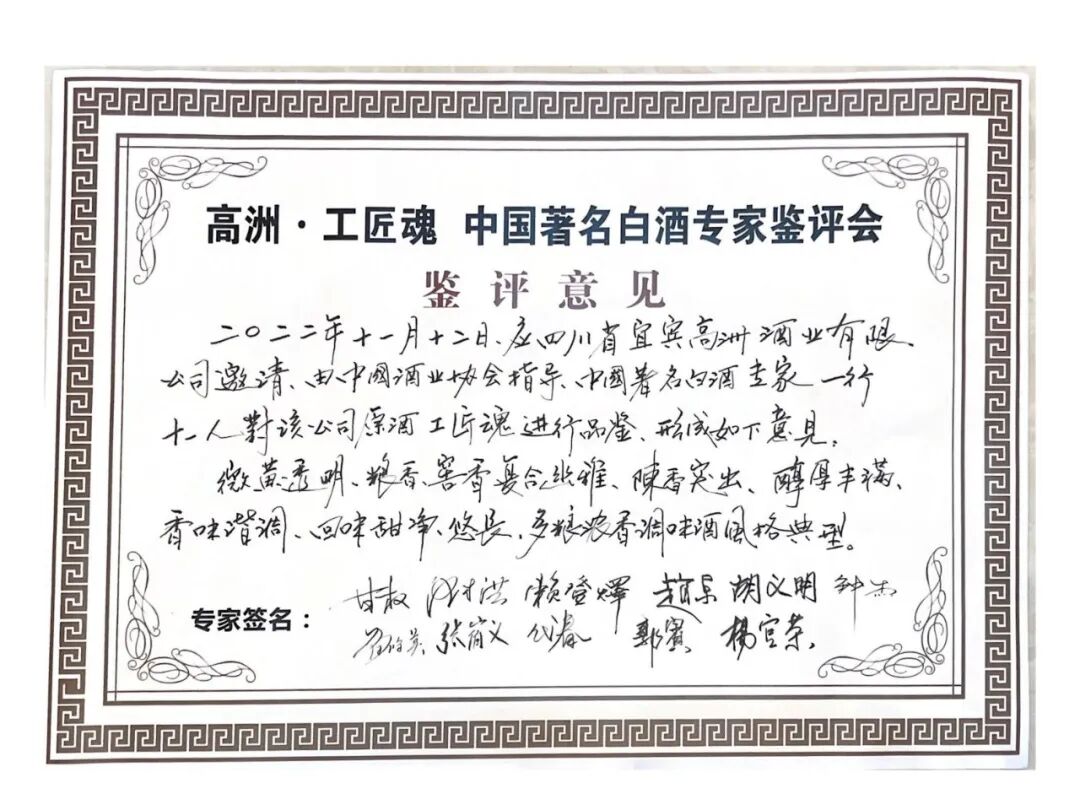 高洲·工匠魂 中国著名白酒专家鉴评会
鉴评意见
二〇二二年十一月十二日、应四川省宜宾高洲酒业有限
公司邀请、由中國酒业协会指导、中國著名白酒专家一行
十一人對该公司原酒工匠魂进行品鉴、形成如下意见,
微黄透明、粮香、窖香复合幽雅、陳香突出、醇厚丰满、
香味谐调、回味甜净、悠长、多粮浓香调味酒风格典型。
专家签名: 甘权 赖登燡 胡义明 钟杰
张宿义 代春 郭宾 楊官荣